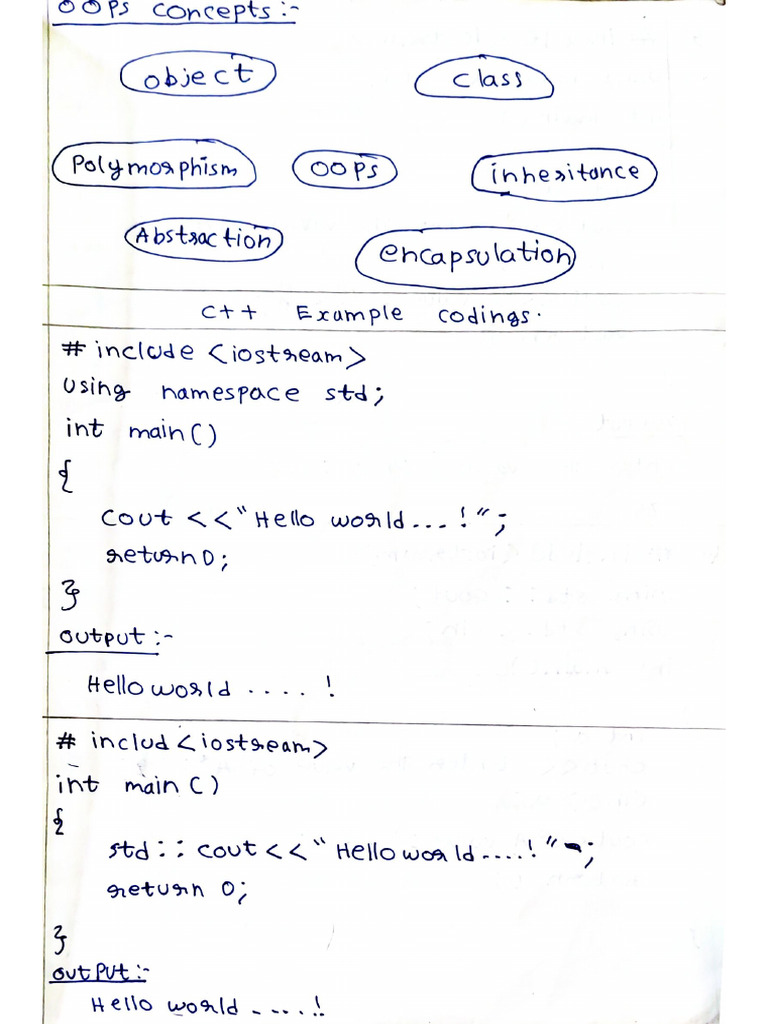 OOPs concepts:-
object
class
Polymorphism
OOPs
inheritance
Abstraction
encapsulation
C++ Example codings.
# include <iostream>
Using namespace std;
int main()
{
cout <<"Hello world...!";
return 0;
}
output:-
Hello world ....!
# includ <iostream>
int main ()
{
std::cout<<"Hello world....!";
return 0;
}
output:-
Hello world ....!!